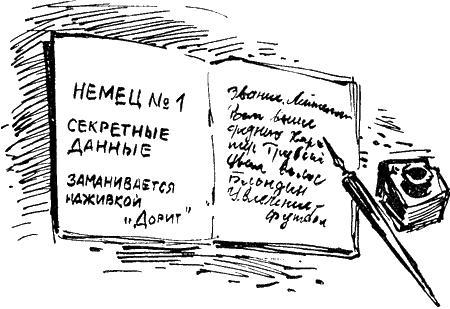 НЕМЕЦ № 1
СЕКРЕТНЫЕ
ДАННЫЕ
ЗАМАНИВАЕТСЯ
НАЖИВКОЙ
„Дорит"
Звание. Лейтенант
Рост выше
среднего Хара
тер Грубый
Цвет волос
Блондин
Увлечения
футбол